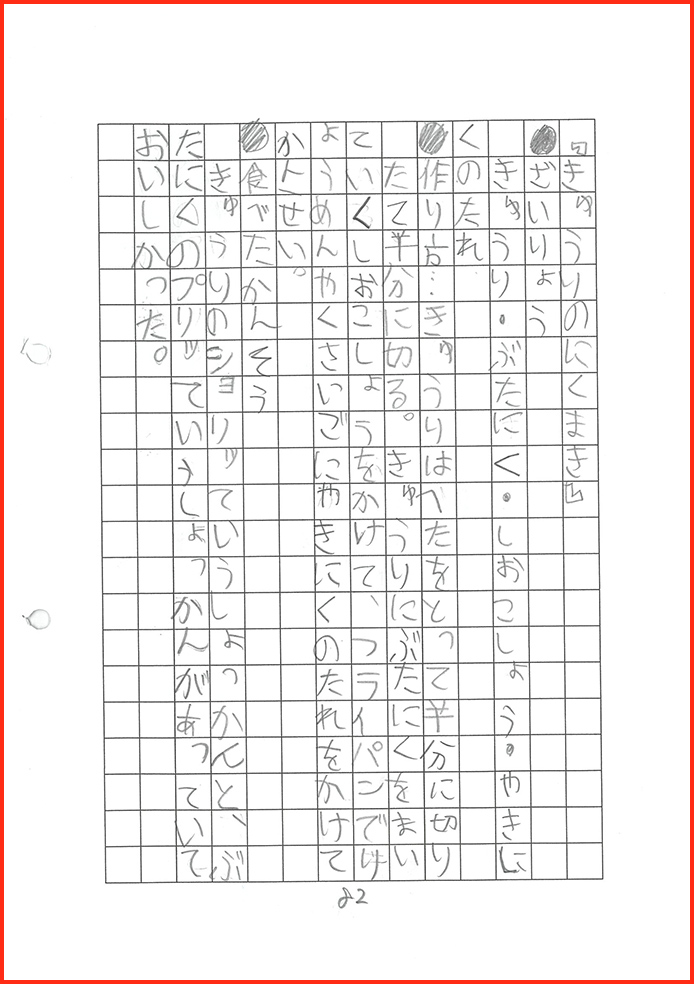 「きゅうりのにくまき」
●ざいりょう
きゅうり・ぶたにく・しおこしょう・やきに
くのたれ
●作り方…きゅうりはへたをとって半分に切り
たて半分に切る。きゅうりにぶたにくをまい
ていくしおこしょうをかけて、フライパンでり
ょうめんやくさいごにやきにくのたれをかけて
かんせい。
●食べたかんそう
きゅうりのショリッていうしょっかんと、ぶ
たにくのプリッていうしょっかんがあっていて
おいしかった。
82